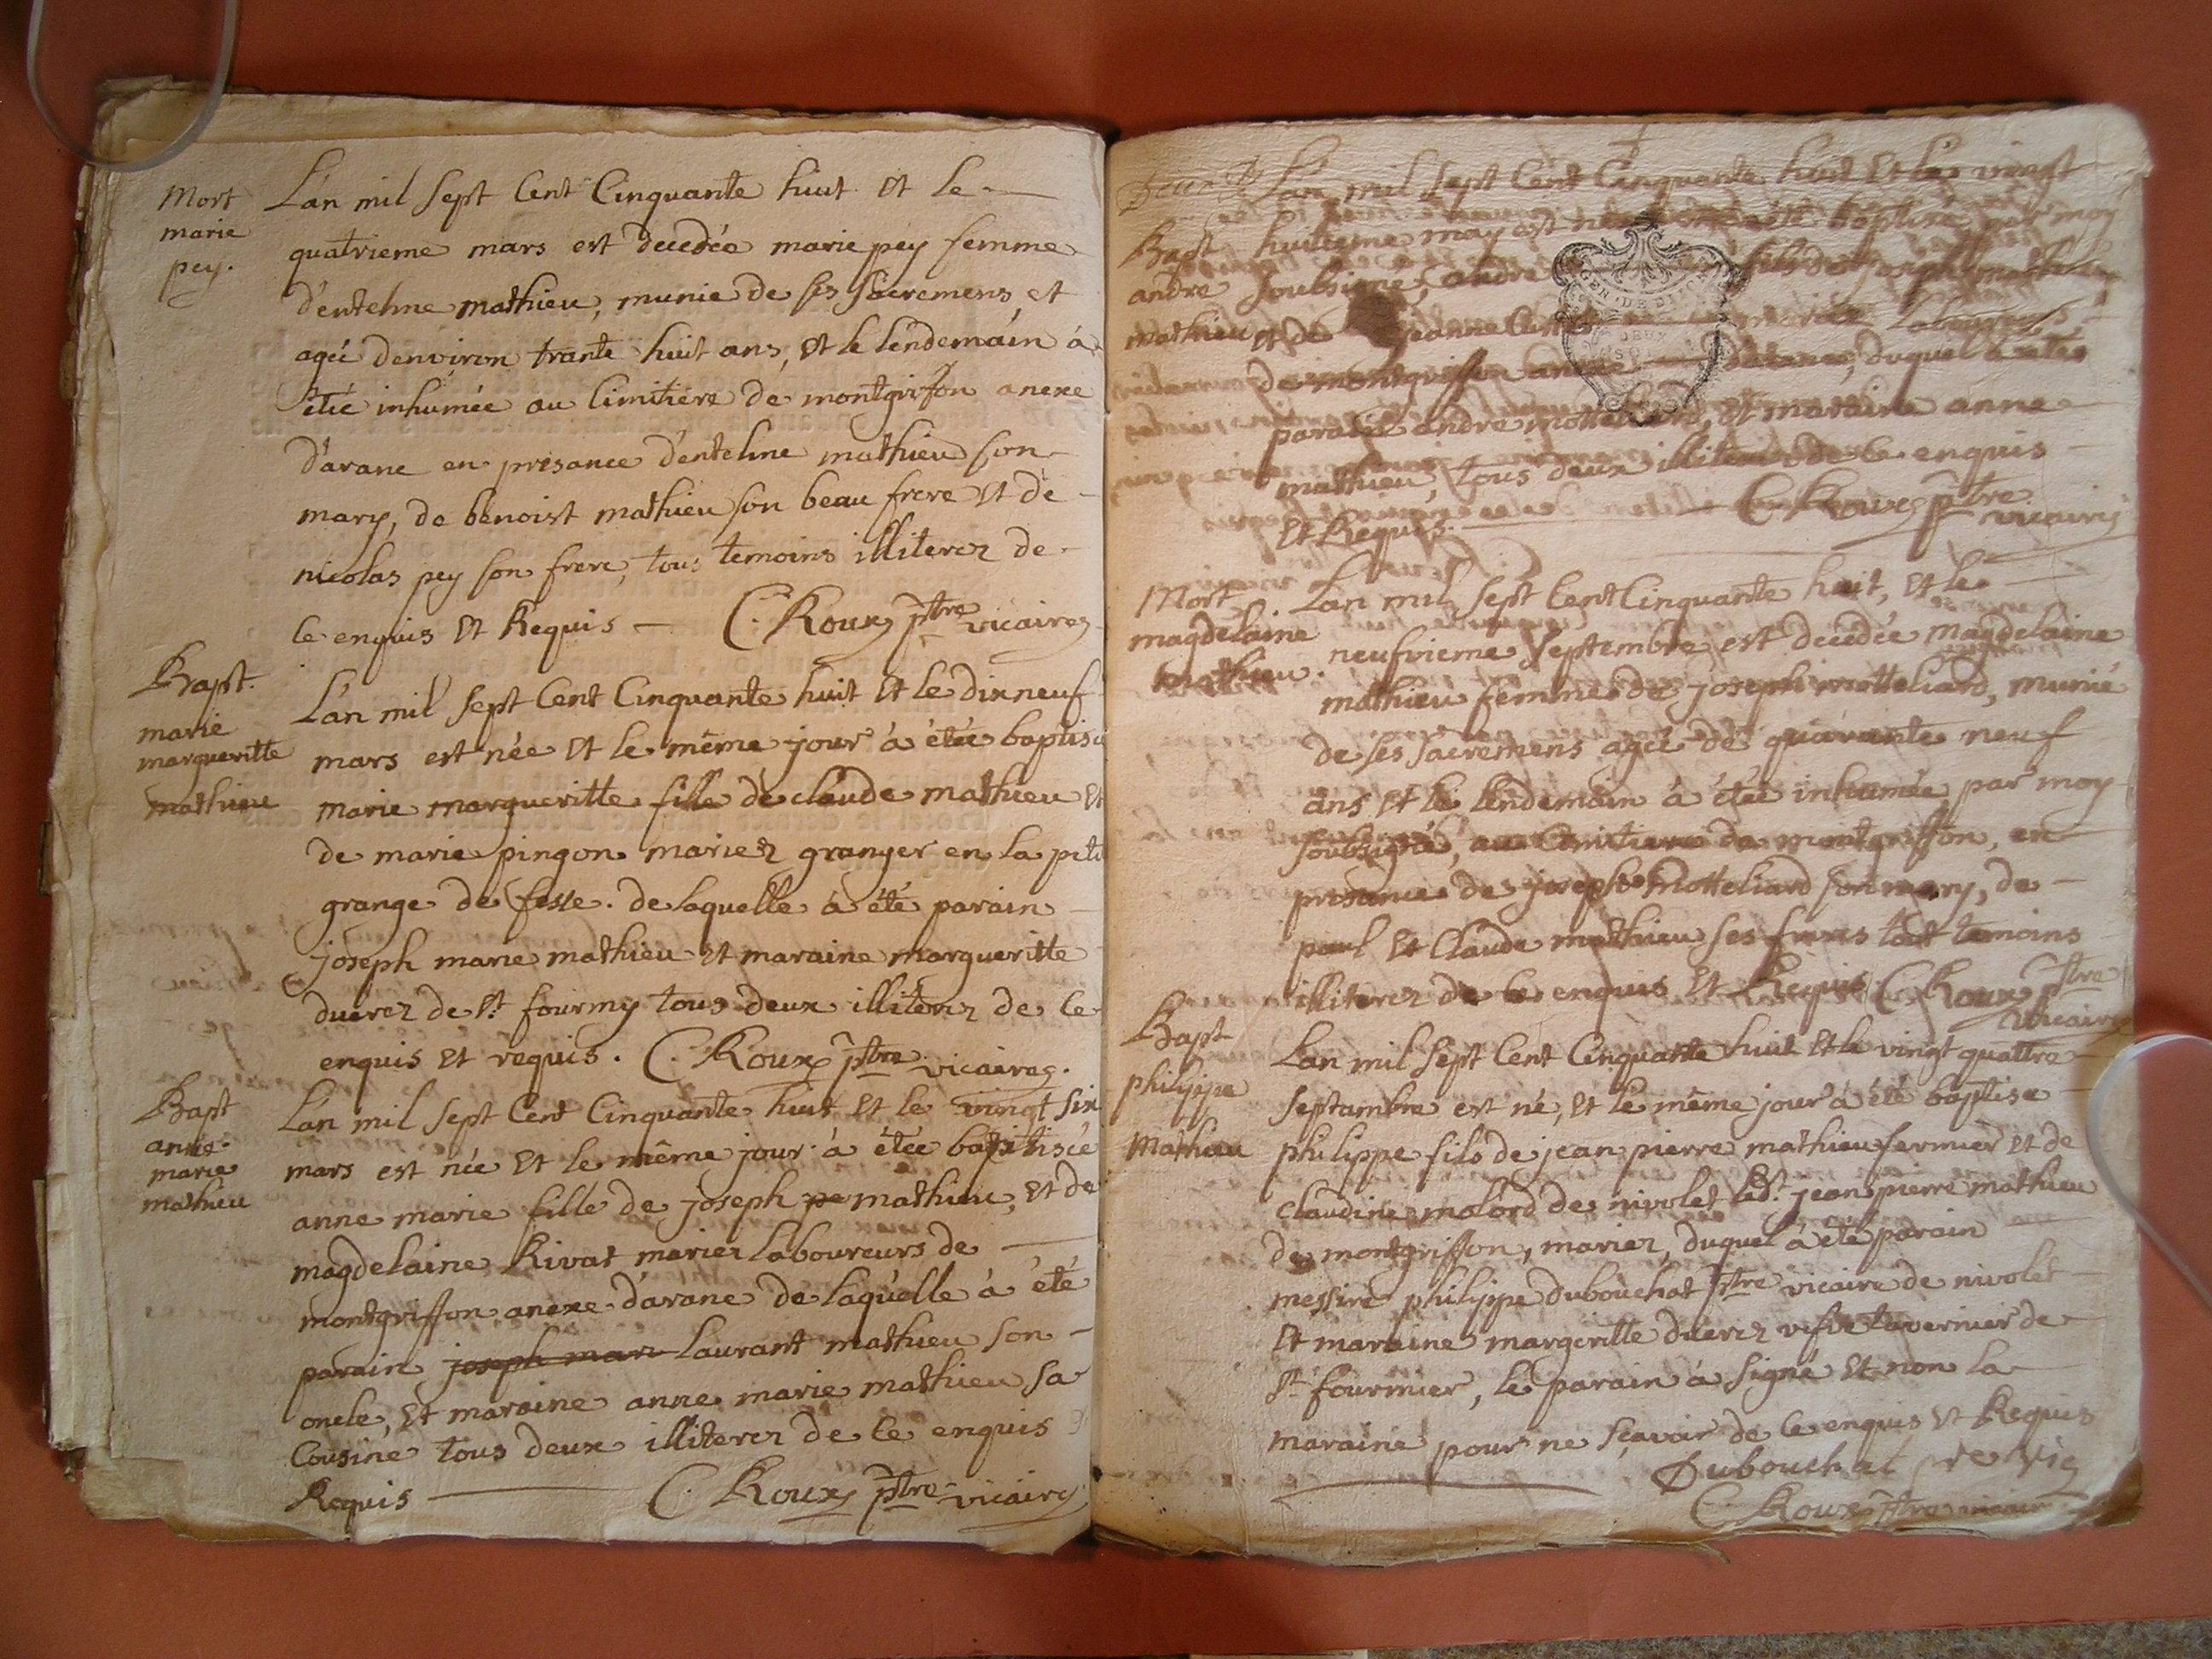 Mort
marie
pey.
L'an mil sept Cent Cinquante huit et le
quatrieme mars est decedée marie pey femme
d'entelme mathieu, munie de ses sacremens et
agée denviron trante huit ans, et le lendemain à
étée inhumée au Cimitiere de montgriffon anexe
d'arane en presance d'entelme mathieu son
mary, de benoist mathieu son beau frere et de
nicolas pey son frere, tous temoins illiterez de
ce enquis et Requis C. Roux ptre vicaire
Bapt.
marie
margueritte
mathieu
L'an mil sept Cent Cinquante huit et le dixneuf
mars est née et le même jour à étée baptisé
marie margueritte fille de claude mathieu et
de marie pingon mariez granger en la peti
grange de fesse. de laquelle à été parain
joseph marie mathieu et maraine margueritte
duerez de st. fourmy tous deux illiterez de ce
enquis et requis. C. Roux ptre vicaire.
Bapt
anne
marie
mathieu
L'an mil sept Cent Cinquante huit et le vingt six
mars est née et le même jour à étée baptiscée
anne marie fille de joseph pe mathieu, et de
magdelaine Rivat mariez laboureurs de
montgriffon anexe d'arane de laquelle à été
parain joseph mari laurant mathieu son
oncle, et maraine anne marie mathieu sa
Cousine tous deux illiterez de ce enquis
Requis C. Roux ptre vicaire
L'an mil sept Cent Cinquante huit et le vingt
Bapt
andre
mathieu
huitieme may est né baptisé par moy
soubsigné, andre fils de joseph mathieu
et de jeanne mariez laboureurs
de montgriffon anexe d'arane, duquel à etée
parain andre motteliard, et maraine anne
mathieu, tous deux illiterez de ce enquis
et Requis. C. Roux ptre
vicaire
Mort
magdelaine
mathieu.
L'an mil sept Cent Cinquante huit, et le
neufvieme septembre est decedée magdelaine
mathieu femme de joseph motteliard, munie
de ses sacremens agée de quarante neuf
ans et le lendemain à étée inhumée par moy
soubsigné, au Cimitiere de montgriffon, en
presance de joseph motteliard son mary, de
paul et Claude mathieu ses freres tout temoins
illiterez de ce enquis et Requis C. Roux ptre
vicaire
Bapt
philippe
Mathieu
L'an mil sept Cent Cinquante huit et le vingt quattre
septambre est né, et le même jour à été baptise
philippe fils de jean pierre mathieu fermier et de
claudine molord de nivolet led. jean pierre mathieu
de montgriffon, mariez, duquel à été parain
messire philippe dubouchat ptre vicaire de nivolet
et maraine margeritte duerez vefve tavernier de
st. fourmier, le parain à signé et non la
maraine pour ne sçavoir de ce enquis et Requis
Dubouchat
C. Roux ptre vicaire